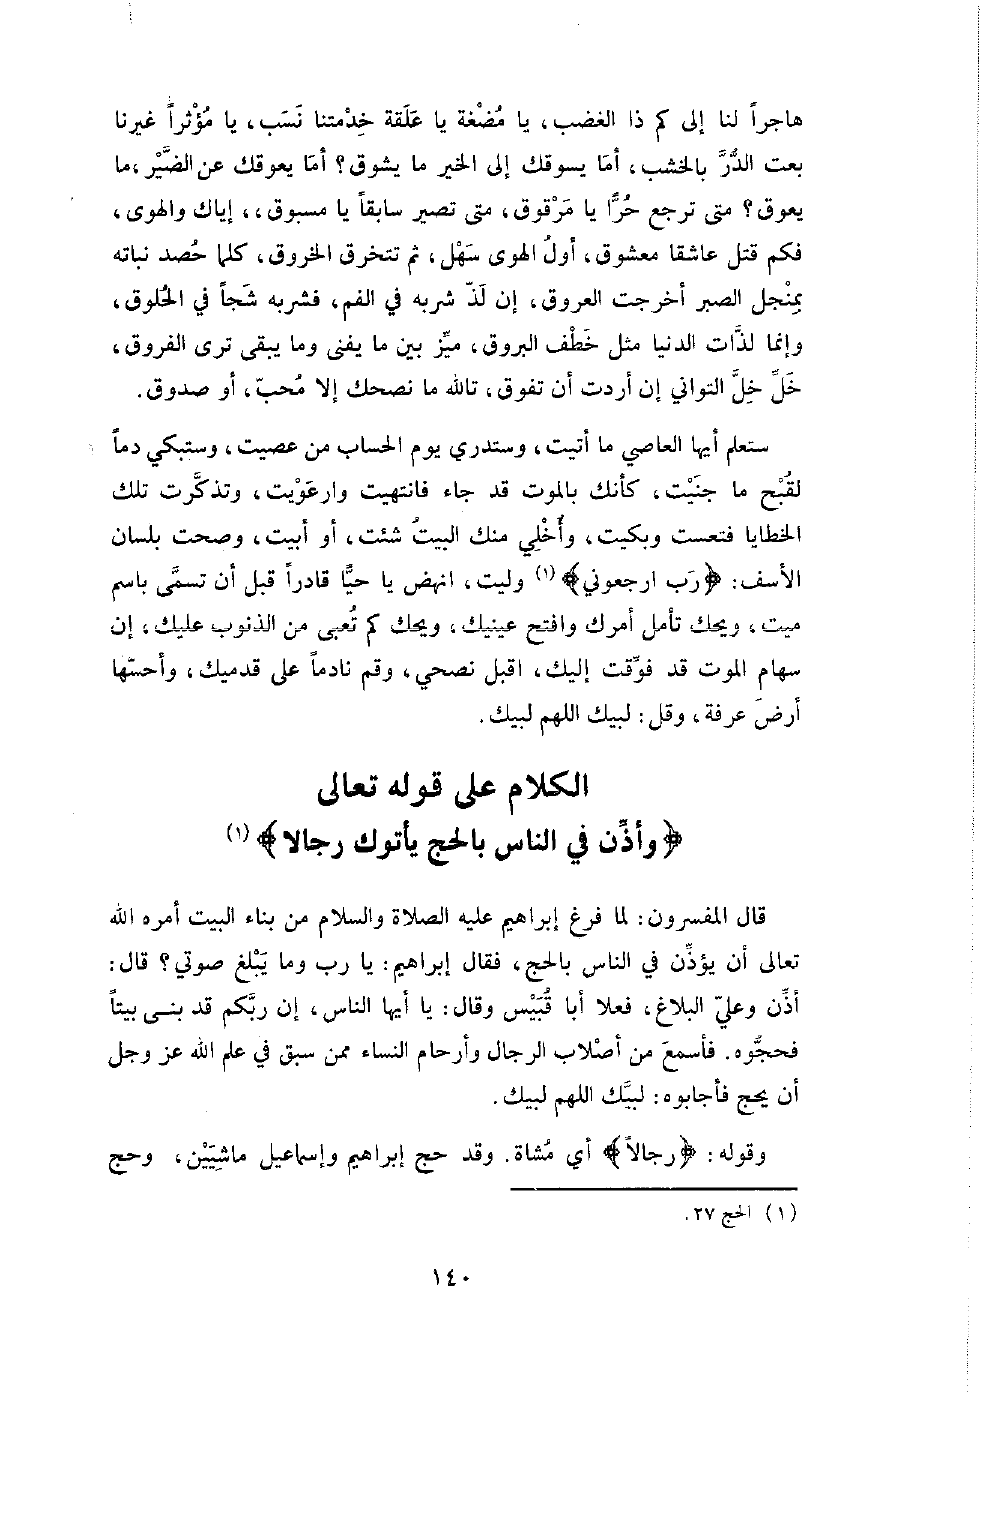 هاجراً لنا إلى كم ذا الغضب، يا مُضْغة يا عَلَقة خِدْمتنا نَسَب، يا مُؤْثراً غيرنا
بعت الدُّرَّ بالخشب، أمَا يسوقك إلى الخير ما يشوق؟ أمَا يعوقك عن الضَّيْر،ما
يعوق؟ متى ترجع حُرًّا يا مَرْقوق، متى تصير سابقاً يا مسبوق،، إياك والهوى،
فكم قتل عاشقا معشوق، أولُ الهوى سَهْل، ثم تتخرق الخروق، كلما حُصد نباته
بمِنْجل الصبر أخرجت العروق، إن لَذّ شربه في الفم، فشربه شَجاً في الحُلوق،
وإنما لذَّات الدنيا مثل خَطْف البروق، ميِّز بين ما يفنى وما يبقى ترى الفروق،
خَلِّ خِلَّ التواني إن أردت أن تفوق، تالله ما نصحك إلا مُحبّ، أو صدوق.
ستعلم أيها العاصي ما أتيت، وستدري يوم الحساب من عصيت، وستبكي دماً
لقُبْح ما جنَيْت، كأنك بالموت قد جاء فانتهيت وارعَوْيت، وتذكَّرت تلك
الخطايا فتعست وبكيت، وأُخْلِي منك البيتُ شئت، أو أبيت، وصحت بلسان
الأسف: ﴿رَب ارجعوني﴾ (١) وليت، انهض يا حيًّا قادراً قبل أن تسمَّى باسم
ميت، ويحك تأمل أمرك وافتح عينيك، ويحك كم تُعبى من الذنوب عليك، إن
سهام الموت قد فوِّقت إليك، اقبل نصحي، وقم نادماً على قدميك، وأحسّها
أرضَ عرفة، وقل: لبيك اللهم لبيك.
الكلام على قوله تعالى
﴿وأذِّن في الناس بالحج يأتوك رجالا﴾ (١)
قال المفسرون: لما فرغ إبراهيم عليه الصلاة والسلام من بناء البيت أمره الله
تعالى أن يؤذِّن في الناس بالحج، فقال إبراهيم: يا رب وما يَبْلغ صوتي؟ قال:
أذِّن وعليّ البلاغ، فعلا أبا قُبَيْس وقال: يا أيها الناس، إن ربَّكم قد بنى بيتاً
فحجُّوه. فأسمعَ من أصْلاب الرجال وأرحام النساء ممن سبق في علم الله عز وجل
أن يحج فأجابوه: لبيَّك اللهم لبيك.
وقوله: ﴿رجالاً﴾ أي مُشاة. وقد حج إبراهيم وإسماعيل ماشيَيْن، وحج
(١) الحج ٢٧.
١٤٠